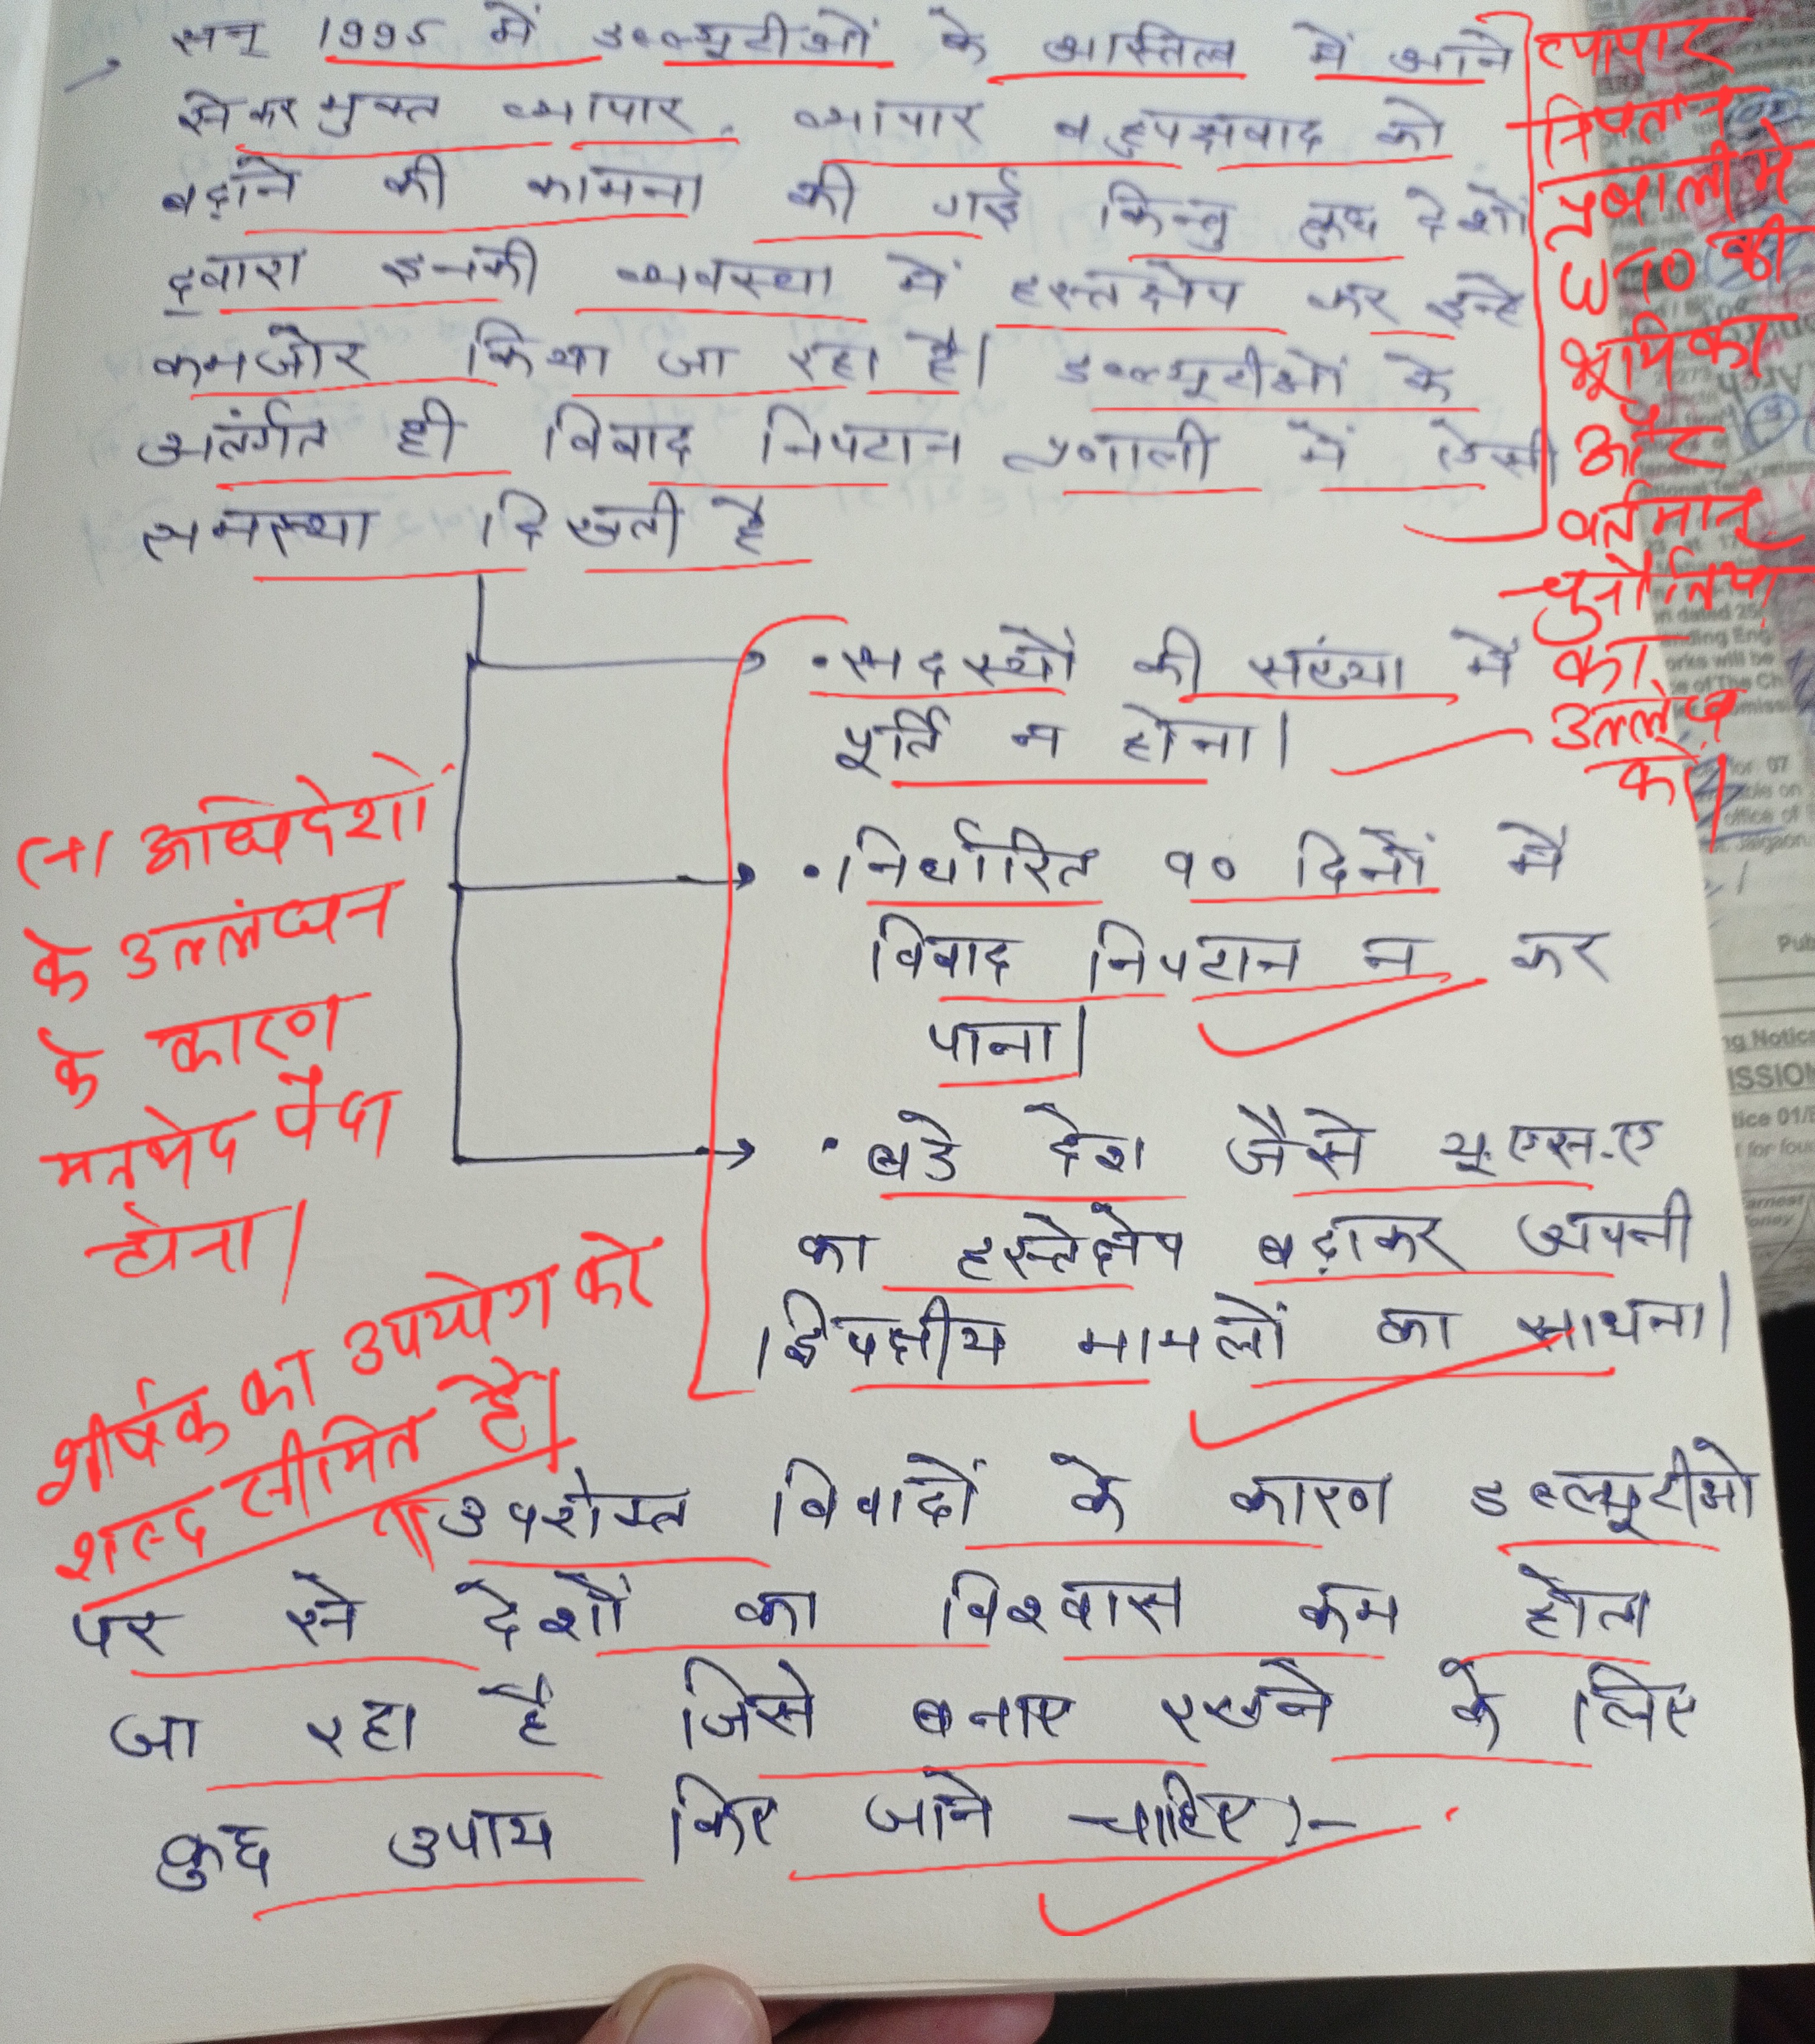 सन् 1995 में डब्ल्यूटीओ के अस्तित्व में आने
से कर मुक्त व्यापार, व्यापार बहुपक्षवाद को
बढ़ाने की कामना की गई किन्तु कुछ देशों
द्वारा इनकी व्यवस्था में हस्तक्षेप कर इन्हें
कमजोर किया जा रहा है। डब्ल्यूटीओ के
अतंर्गत ही विवाद निपटान प्रणाली में ऐसी
समस्या दिखती है
• सदस्यों की संख्या में
पूर्ति न होना।
• निर्धारित 90 दिनों में
विवाद निपटान न कर
पाना।
• बडे देश जैसे यू.एस.ए
का हस्तेक्षेप बढ़ाकर अपनी
द्विपक्षीय मामलों का साधना।
उपरोक्त विवादों के कारण डब्ल्यूटीओ
पर से देशों का विश्वास कम होता
जा रहा है जिसे बनाए रखने के लिए
कुछ उपाय किए जाने चाहिए:-
व्यापार
निपटान
प्रणाली में
WTO की
भूमिका
और
वर्तमान
चुनौतियों
का
उल्लेख
करें।
अधिदेशों
के उल्लंघन
के कारण
मतभेद पैदा
होना।
शीर्षक का उपयोग करें
शब्द सीमित है।
ng Notice
ISSION
tice 01/
for four
Earnest
oney
Pub